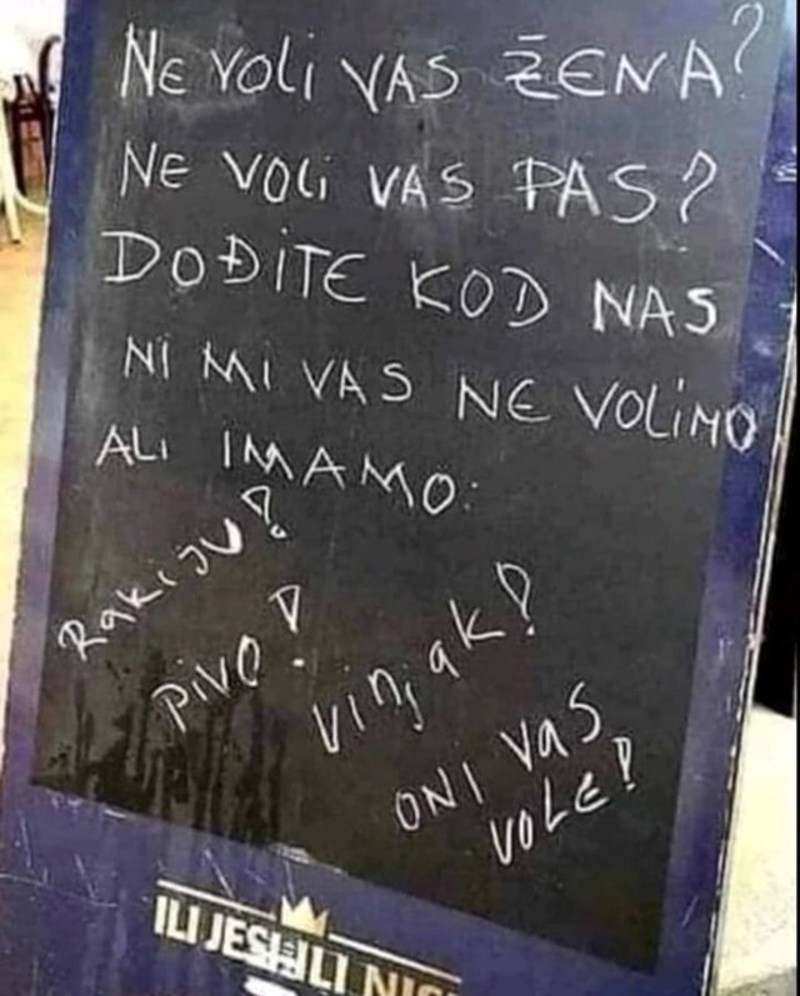 NE VOLI VAS ŽENA?
NE VOLI VAS PAS?
DOĐITE KOD NAS
NI MI VAS NE VOLIMO
ALI IMAMO:
RAKIJU!
PIVO!
Vinjak!
ONI VAS
VOLE!
ILI JESI ILI NIS